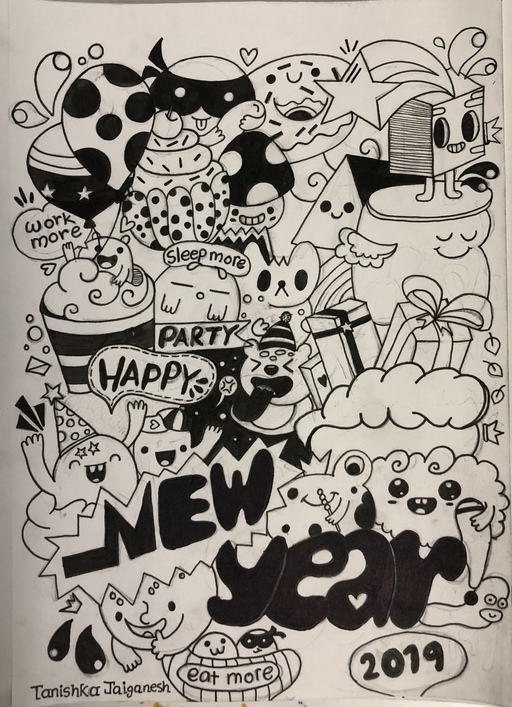 work
more
Sleep more
PARTY
HAPPY
NEW
year
eat more
2019
Tanishka Jaiganesh